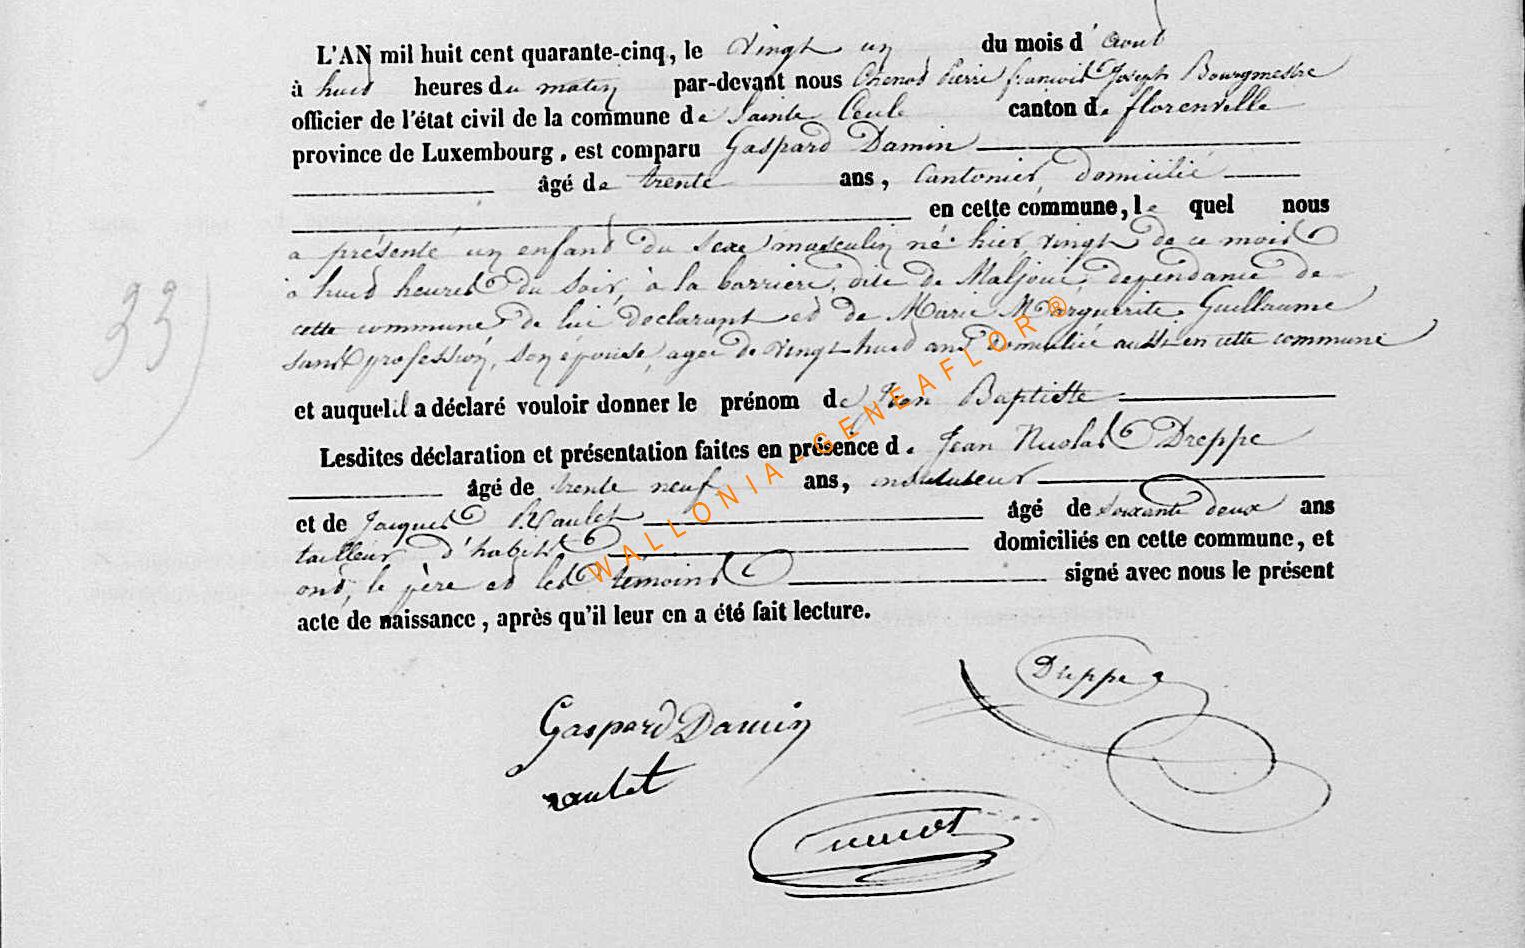 L'AN mil huit cent quarante-cinq, le vingt un du mois d'aout
à huit heures du matin par-devant nous Pierre francois Joseph Bourgmestre
officier de l'état civil de la commune de Sainte Cecile canton de florenville
province de Luxembourg, est comparu Gaspard Damin
âgé de trente ans, Cantonier, domicilié
en cette commune, le quel nous
a présenté un enfant du sexe masculin né hier vingt de ce mois
à huit heures du soir, à la barriere, dite de Maljoue, dependance de
cette commune, de lui déclarant et de Marie Marguerite Guillaume
sans profession, son épouse, agée de vingt huit ans domiciliée aussi en cette commune
33)
et auquel il a déclaré vouloir donner le prénom de Jean Baptiste
Lesdites déclaration et présentation faites en présence de Jean Nicolas Dreppe
âgé de trente neuf ans, instituteur
et de Jacques Raulet âgé de soixante deux ans
tailleur d'habits domiciliés en cette commune, et
ont, le père et les témoins signé avec nous le présent
acte de naissance, après qu'il leur en a été fait lecture.
WALLONIA-GENEAFLOR®
Dreppe
Gaspard Damin
raulet